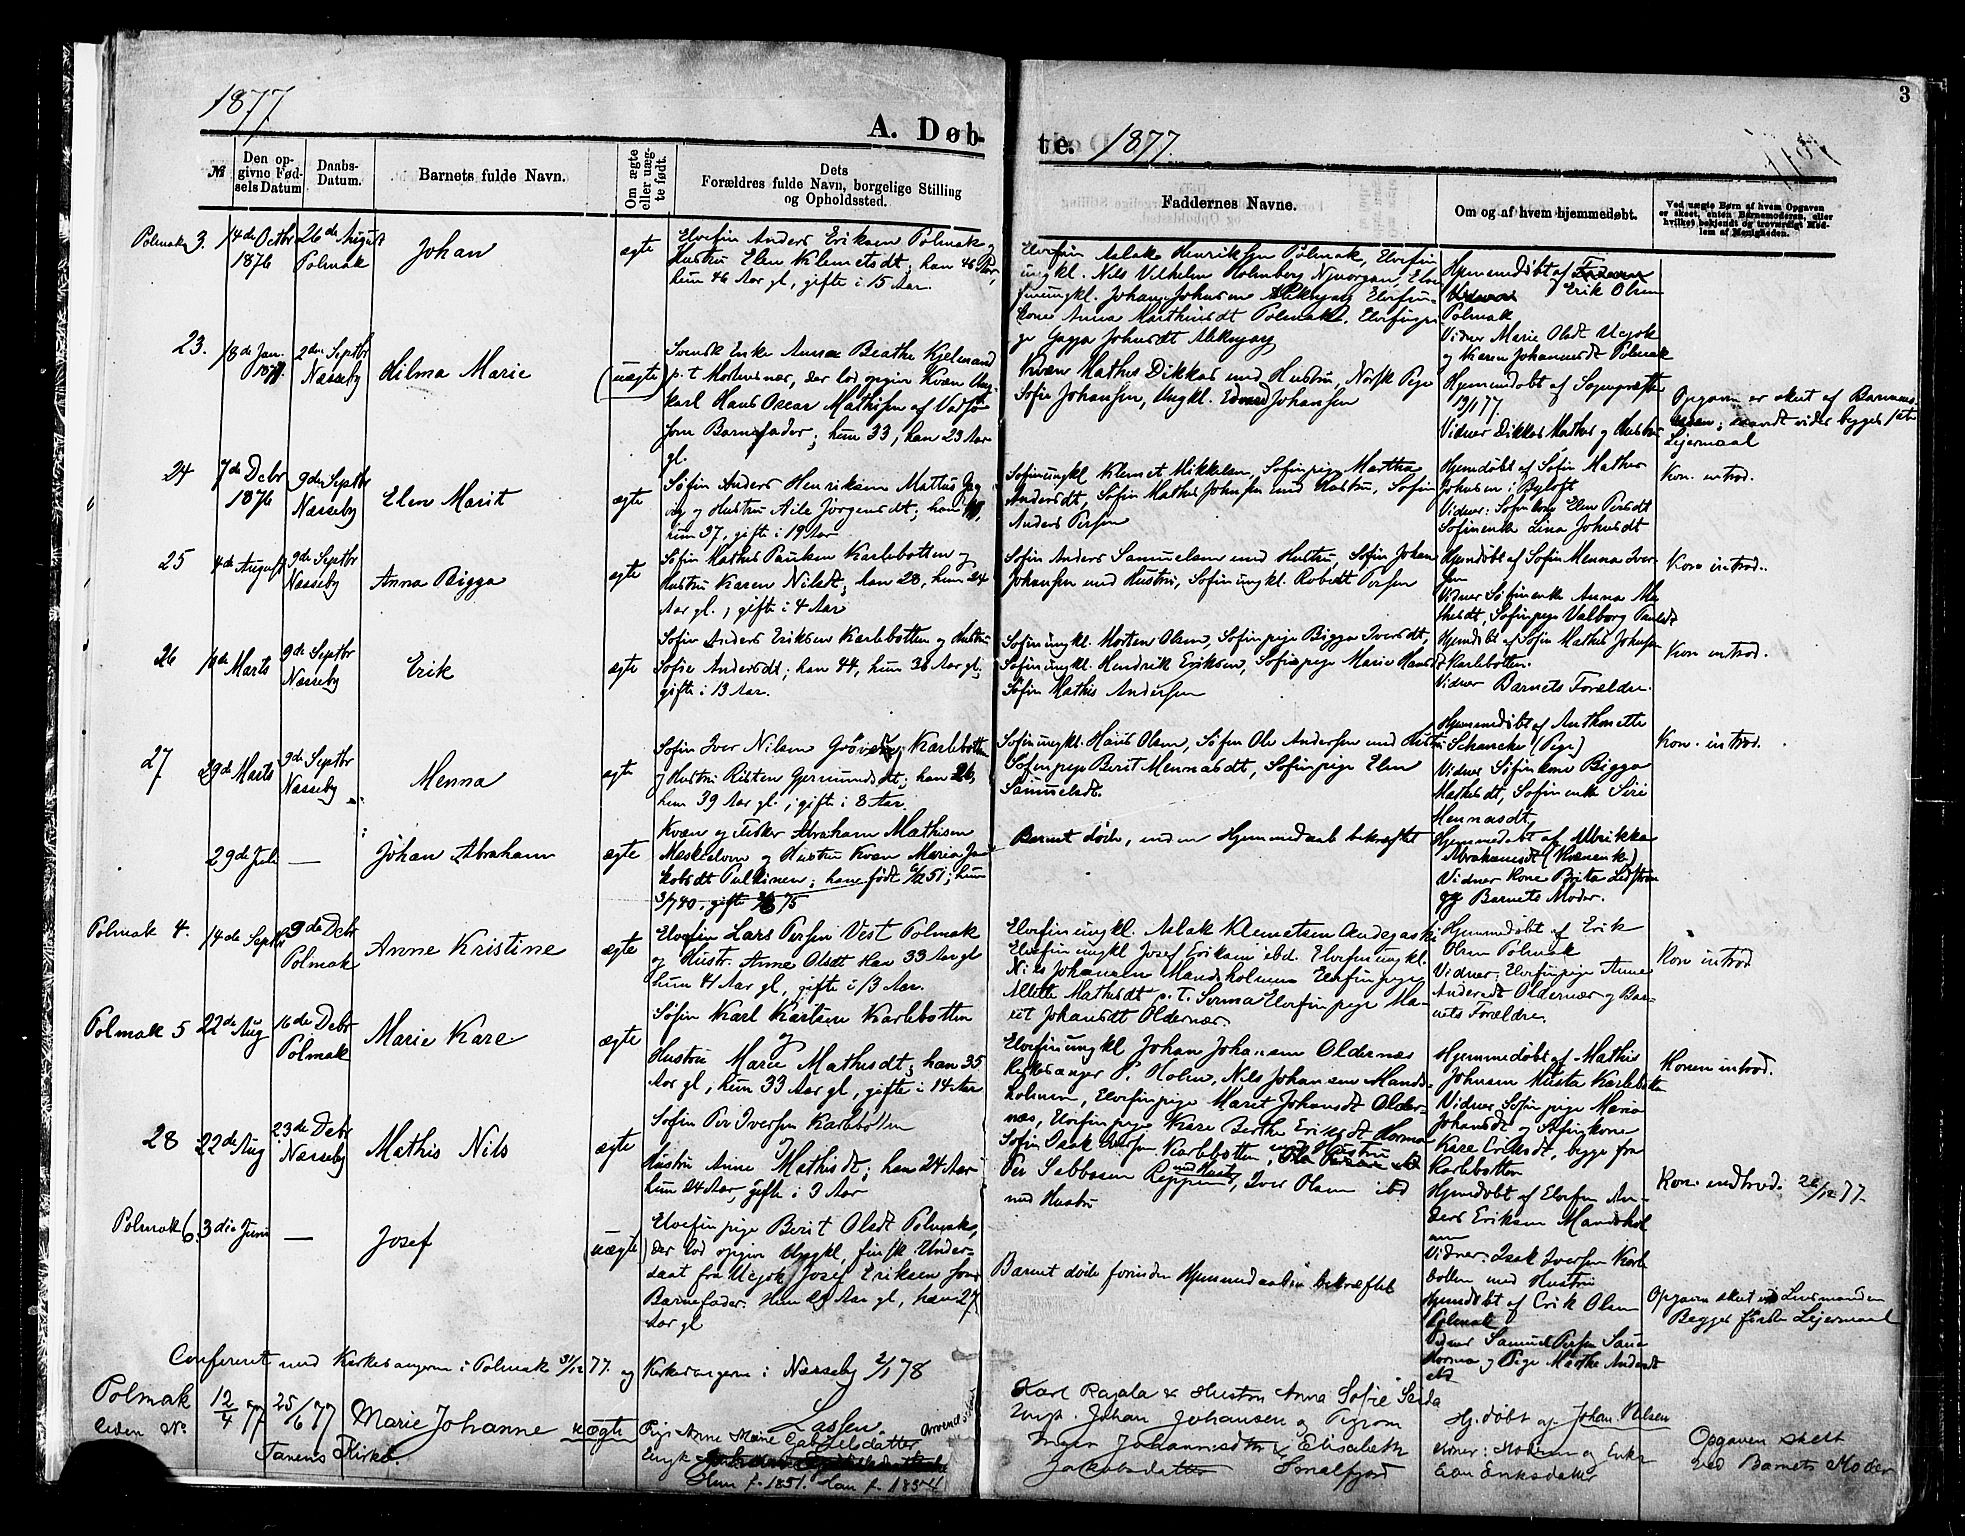 1877.
A. Døbte. 1877.
3
№
Den opgivne Fødsels Datum
Daabs-Datum.
Barnets fulde Navn.
Om ægte eller uægte født.
Dets
Forældres fulde Navn, borgelige Stilling
og Opholdssted.
Faddernes Navne.
Om og af hvem hjemmedøbt.
Ved uægte Børn af hvem Opgaven
er skeet, enten Barnemoderen, eller
hvilket bekjendt og troværdigt Medlem af Menigheden.
Polmak 3.
14de Octbr
1876
26de August
Polmak
Johan
ægte
Elvefin Anders Eriksen Polmak og
Hustru Elen Klemetsdt; han 46 Aar,
hun 46 Aar gl, gifte i 15 Aar.
Elvefin Aslak Henriksen Polmak, Elvefin
ungkl. Nils Vilhelm Holmborg
Anna Mathisdt Polmak
Hjemmedøbt af
Erik Olsen
Polmak
Vidner Marie Olsdt Utsjok
og Karen Johannesdt Polmak
23.
18de Jan.
1877
2den Septbr
Næsseby
Hilma Marie
(uægte)
Svensk Enke Anna Beathe Kjelmand
p.t. Mortensnæs, der lod opgive Kvæn Ung-
karl Hans Oscar Mathisen af Vadsø
som Barnefader; hun 33, han 23 Aar
gl.
Kvæn Mathis Dikkas med Hustru, Norsk Pige
Sofie Johansen, Ungkl. Edvard Johansen
Hjemmedøbt af Sognepræsten
19/1 77
Vidner Dikkas Mathis og Hustru
Opgaven er skeet af Barnemo-
deren; begges 1ste
Lejermaal
24
7de Debr
1876
9de Septbr
Næsseby
Elen Marit
ægte
Søfin Anders Henriksen
og Hustru Aile Jørgensdt; han
hun 37, gifte i 19 Aar
Søfinungkl Klemet Mikkelsen, Søfinpige Martha
Andersdt, Søfin Mathis Johnsen med Hustru, Søfin
Anders Persen
Hjemdøbt af Søfin Mathis
Johnsen i Byluft
Vidner: Søfinkone Elen Persdt
Søfinenke Lina Johnsdt
Kon. introd.
25
4de August
9de Septbr
Næsseby
Anna Bigga
ægte
Søfin Mathis Paulsen Karlebotten og
Hustru Karen Nilsdt; han 28, hun 24
Aar gl.; gifte i 4 Aar
Søfin Anders Samuelsen med Hustru, Søfin Johan
Johansen med Hustru, Søfinungkl. Robert Persen
Hjemdøbt af Søfin Menna Iver-
sen
Vidner Søfinenke Anna Ma-
thisdt, Søfinpige Valborg Paulsdt
Kon introd.
26
Marts
9de Septbr
Næsseby
Erik
ægte
Søfin Anders Eriksen Karlebotten og Hustru
Sofie Andersdt; han 44, hun 38 Aar gl;
gifte i 13 Aar.
Søfinungkl. Morten Olsen, Søfinpige Bigga Iversdt,
Søfinungkl. Hendrik Eriksen, Søfinpige Marie Hansdt
Søfin Mathis Andersen
Hjemdøbt af Søfin Mathis Johnsen
Karlebotten.
Vidner Barnets Forældre.
Kon introd.
27
29de Marts
9de Septbr
Næsseby
Menna
ægte
Søfin Iver Nilsen Karlebotten
og Hustru Risten Gjermundsdt; han 26,
hun 39 Aar gl., gifte i 8 Aar.
Søfinungkl. Hans Olsen, Søfin Ole Andersen med Hustru
Søfinpige Berit Mennasdt, Søfinpige Elen
Samuelsdt.
Hjemmedøbt af Anthonette
Schancke (Pige)
Vidner Søfinkone Bigga
Mathisdt, Søfinenke Siri
Mennasdt
Kon. introd.
29de Juli
—
Johan Abraham
ægte
Kvæn og Fisker Abraham Mathisen
Meskelven og Hustru Kvæn Maria Ja-
kobsdt Pulkinen; han født 51; hun
Barnet døde, inden Hjemmedaab bekræftet
Hjemmedøbt af Ulrikka
Abrahamsdt (Kvænenke)
Vidner Kone Brita
og Barnets Moder.
Polmak 4.
14de Septbr
9de Debr
Polmak
Anne Kristine
ægte
Elvefin Lars Persen Vest Polmak
og Hustr. Anne Olsdt han 33 Aar gl
hun 41 Aar gl, gifte i 13 Aar.
Elvefinungkl. Aslak Klemetsen
Elvefinungkl Josef Eriksen ibd. Elvefinungkl.
Nils Johansen Mandsholmen Elvefinpige
Mathisdt p.t. Sirma Elvefinpige Ma-
rit Johansdt Oldernæs.
Hjemmedøbt af Erik
Olsen Polmak
Vidner Elvefinpige Anne
Andersdt Oldernæs og Bar-
nets Forældre.
Kon introd
Polmak 5
22de Aug
16de Debr
Polmak
Marie Kare
ægte
Søfin Karl Karlsen Karlebotten
og
Hustru Marie Mathisdt; han 35
Aar gl, hun 33 Aar gl, gifte i 14 Aar
Elvefinungkl Johan Johansen Oldernæs
Kirkesanger P. Holm, Nils Johansen Mands-
holmen, Elvefinpige Marit Johansdt Older-
næs, Elvefinpige Kare Berthe Eriksdt Horma
Hjemmedøbt af Mathis
Johnsen Karlebotten
Vidner Søfinpige Maria
Johansdt og Søfinkone
Kare Eriksdt, begge fra
Karlebotten
Konen introd.
28
22de Aug
23de Debr
Næsseby
Mathis Nils
ægte
Søfin Per Iversen Karlebotten
og
Hustru Anne Mathisdt; han 24 Aar
hun 24 Aar, gifte i 3 Aar
Søfin Isak Iversen Karlebotten, med Hustru
Per Sabbasen med Hustr, Iver Olsen ibd
med Hustru
Hjemdøbt af Elvefin An-
ders Eriksen Mandshol-
men
Vidner: Isak Iversen Karle-
botten med Hustru
Kon. indtrod. 23/12 77.
Polmak 6.
3die Juni
—
Josef
(uægte)
Elvefinpige Berit Olsdt Polmak,
der lod opgive Ungkl, finsk Under-
saat fra Utsjok Josef Eriksen som
Barnefader. Hun 29 Aar gl, han 27
Aar gl
Barnet døde forinden Hjemmedaaben bekræftet
Hjemdøbt af Erik Olsen
Polmak
Vidner Samuel Persen
Horma og Pige Marthe Andersdt
ibd
Opgaven skeet ved Lensmanden
Begges første Lejermaal
Confereret med Kirkesangeren i Polmak 31/12 77. og Kirkesangeren i Næsseby 2/1 78
Lassen.
Polmak
uden No
12/4 77
25/6 77
Tanens Kirke.
Marie Johanne
uægte
Pige Anne Marie Gabrielsdatter
Ungk
Hun f. 1851. Han f. 1854
Karl Rajala & Hustru Anna Sofie Seida
Ungk. Johan Johansen og Pigerne
Johannesdtr & Elisabeth
Jakobsdatter Smalfjord
Hj. døbt af Johan Nilsen
Vidner: Moderen og Enke
Eriksdatter
Opgaven skett
ved Barnets Moder